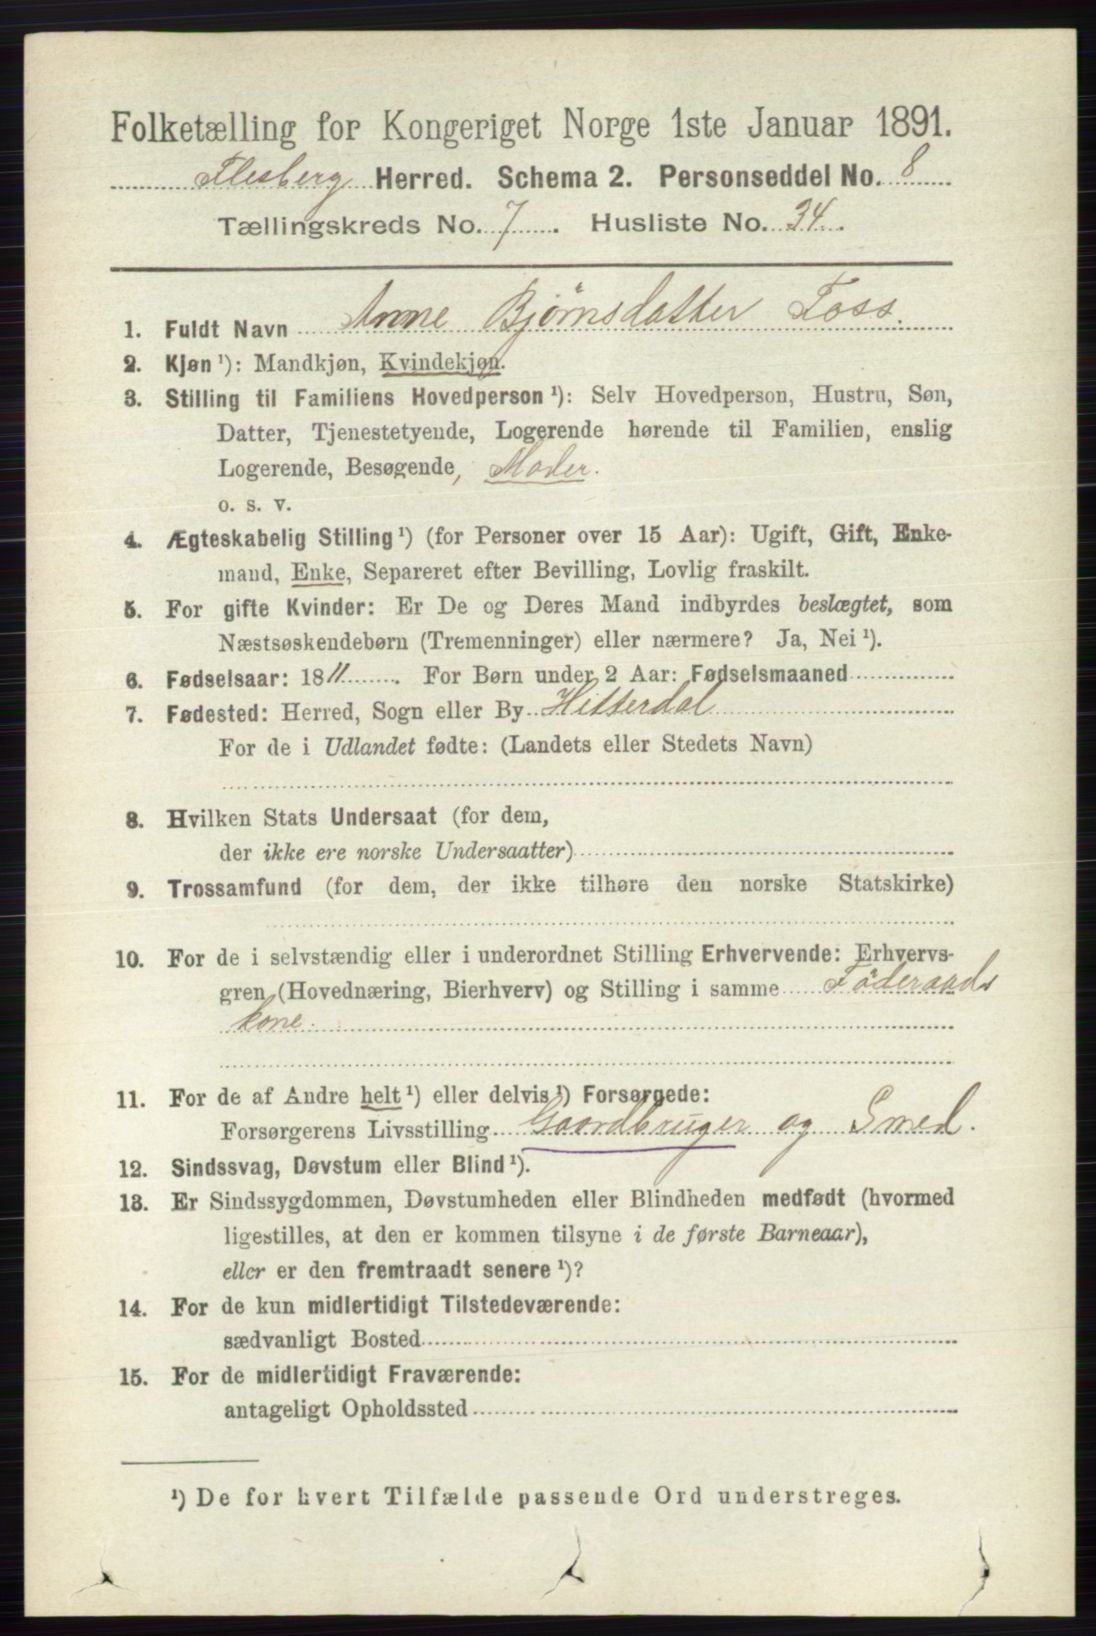 Folketælling for Kongeriget Norge 1ste Januar 1891.
Flesberg Herred. Schema 2. Personseddel No. 8
Tællingskreds No. 7. Husliste No. 34.
1. Fuldt Navn Anne Bjørnsdatter Foss.
2. Kjøn ¹): Mandkjøn, Kvindekjøn.
3. Stilling til Familiens Hovedperson ¹): Selv Hovedperson, Hustru, Søn,
Datter, Tjenestetyende, Logerende hørende til Familien, enslig
Logerende, Besøgende, Moder.
o. s. v.
4. Ægteskabelig Stilling ¹) (for Personer over 15 Aar): Ugift, Gift, Enke-
mand, Enke, Separeret efter Bevilling, Lovlig fraskilt.
5. For gifte Kvinder: Er De og Deres Mand indbyrdes beslægtet, som
Næstsøskendebørn (Tremenninger) eller nærmere? Ja, Nei ¹).
6. Fødselsaar: 1811. For Børn under 2 Aar: Fødselsmaaned
7. Fødested: Herred, Sogn eller By Hitterdal
For de i Udlandet fødte: (Landets eller Stedets Navn)
8. Hvilken Stats Undersaat (for dem,
der ikke ere norske Undersaatter)
9. Trossamfund (for dem, der ikke tilhøre den norske Statskirke)
10. For de i selvstændig eller i underordnet Stilling Erhvervende: Erhvervs-
gren (Hovednæring, Bierhverv) og Stilling i samme Föderaads
kone.
11. For de af Andre helt ¹) eller delvis ¹) Forsørgede:
Forsørgerens Livsstilling Gaardbruger og Smed.
12. Sindssvag, Døvstum eller Blind ¹).
13. Er Sindssygdommen, Døvstumheden eller Blindheden medfødt (hvormed
ligestilles, at den er kommen tilsyne i de første Barneaar),
eller er den fremtraadt senere ¹)?
14. For de kun midlertidigt Tilstedeværende:
sædvanligt Bosted
15. For de midlertidigt Fraværende:
antageligt Opholdssted
¹) De for hvert Tilfælde passende Ord understreges.